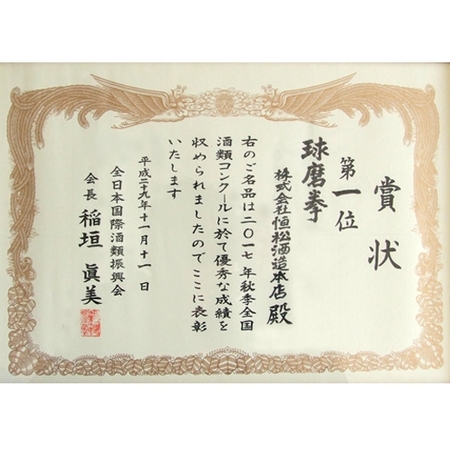 賞状
第一位
球磨拳
株式会社恒松酒造本店殿
右のご名品は二〇一七年秋季全国
酒類コンクールに於て優秀な成績を
収められましたのでここに表彰
いたします
平成二十九年十一月十一日
全日本国際酒類振興会
会長 稲垣眞美